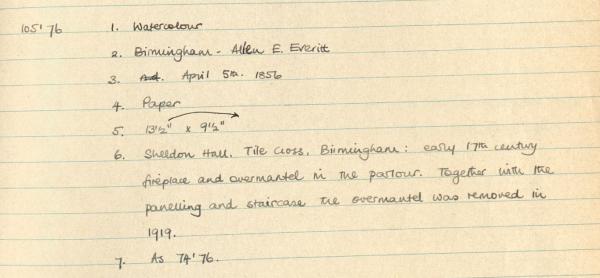 105'76 1. Watercolour
2. Birmingham - Allen E. Everitt
3. April 5th. 1856
4. Paper
5. 13½" x 9½"
6. Sheldon Hall, Tile Cross, Birmingham: early 17th century
fireplace and overmantel in the parlour. Together with the
panelling and staircase the overmantel was removed in
1919.
7. As 74'76.